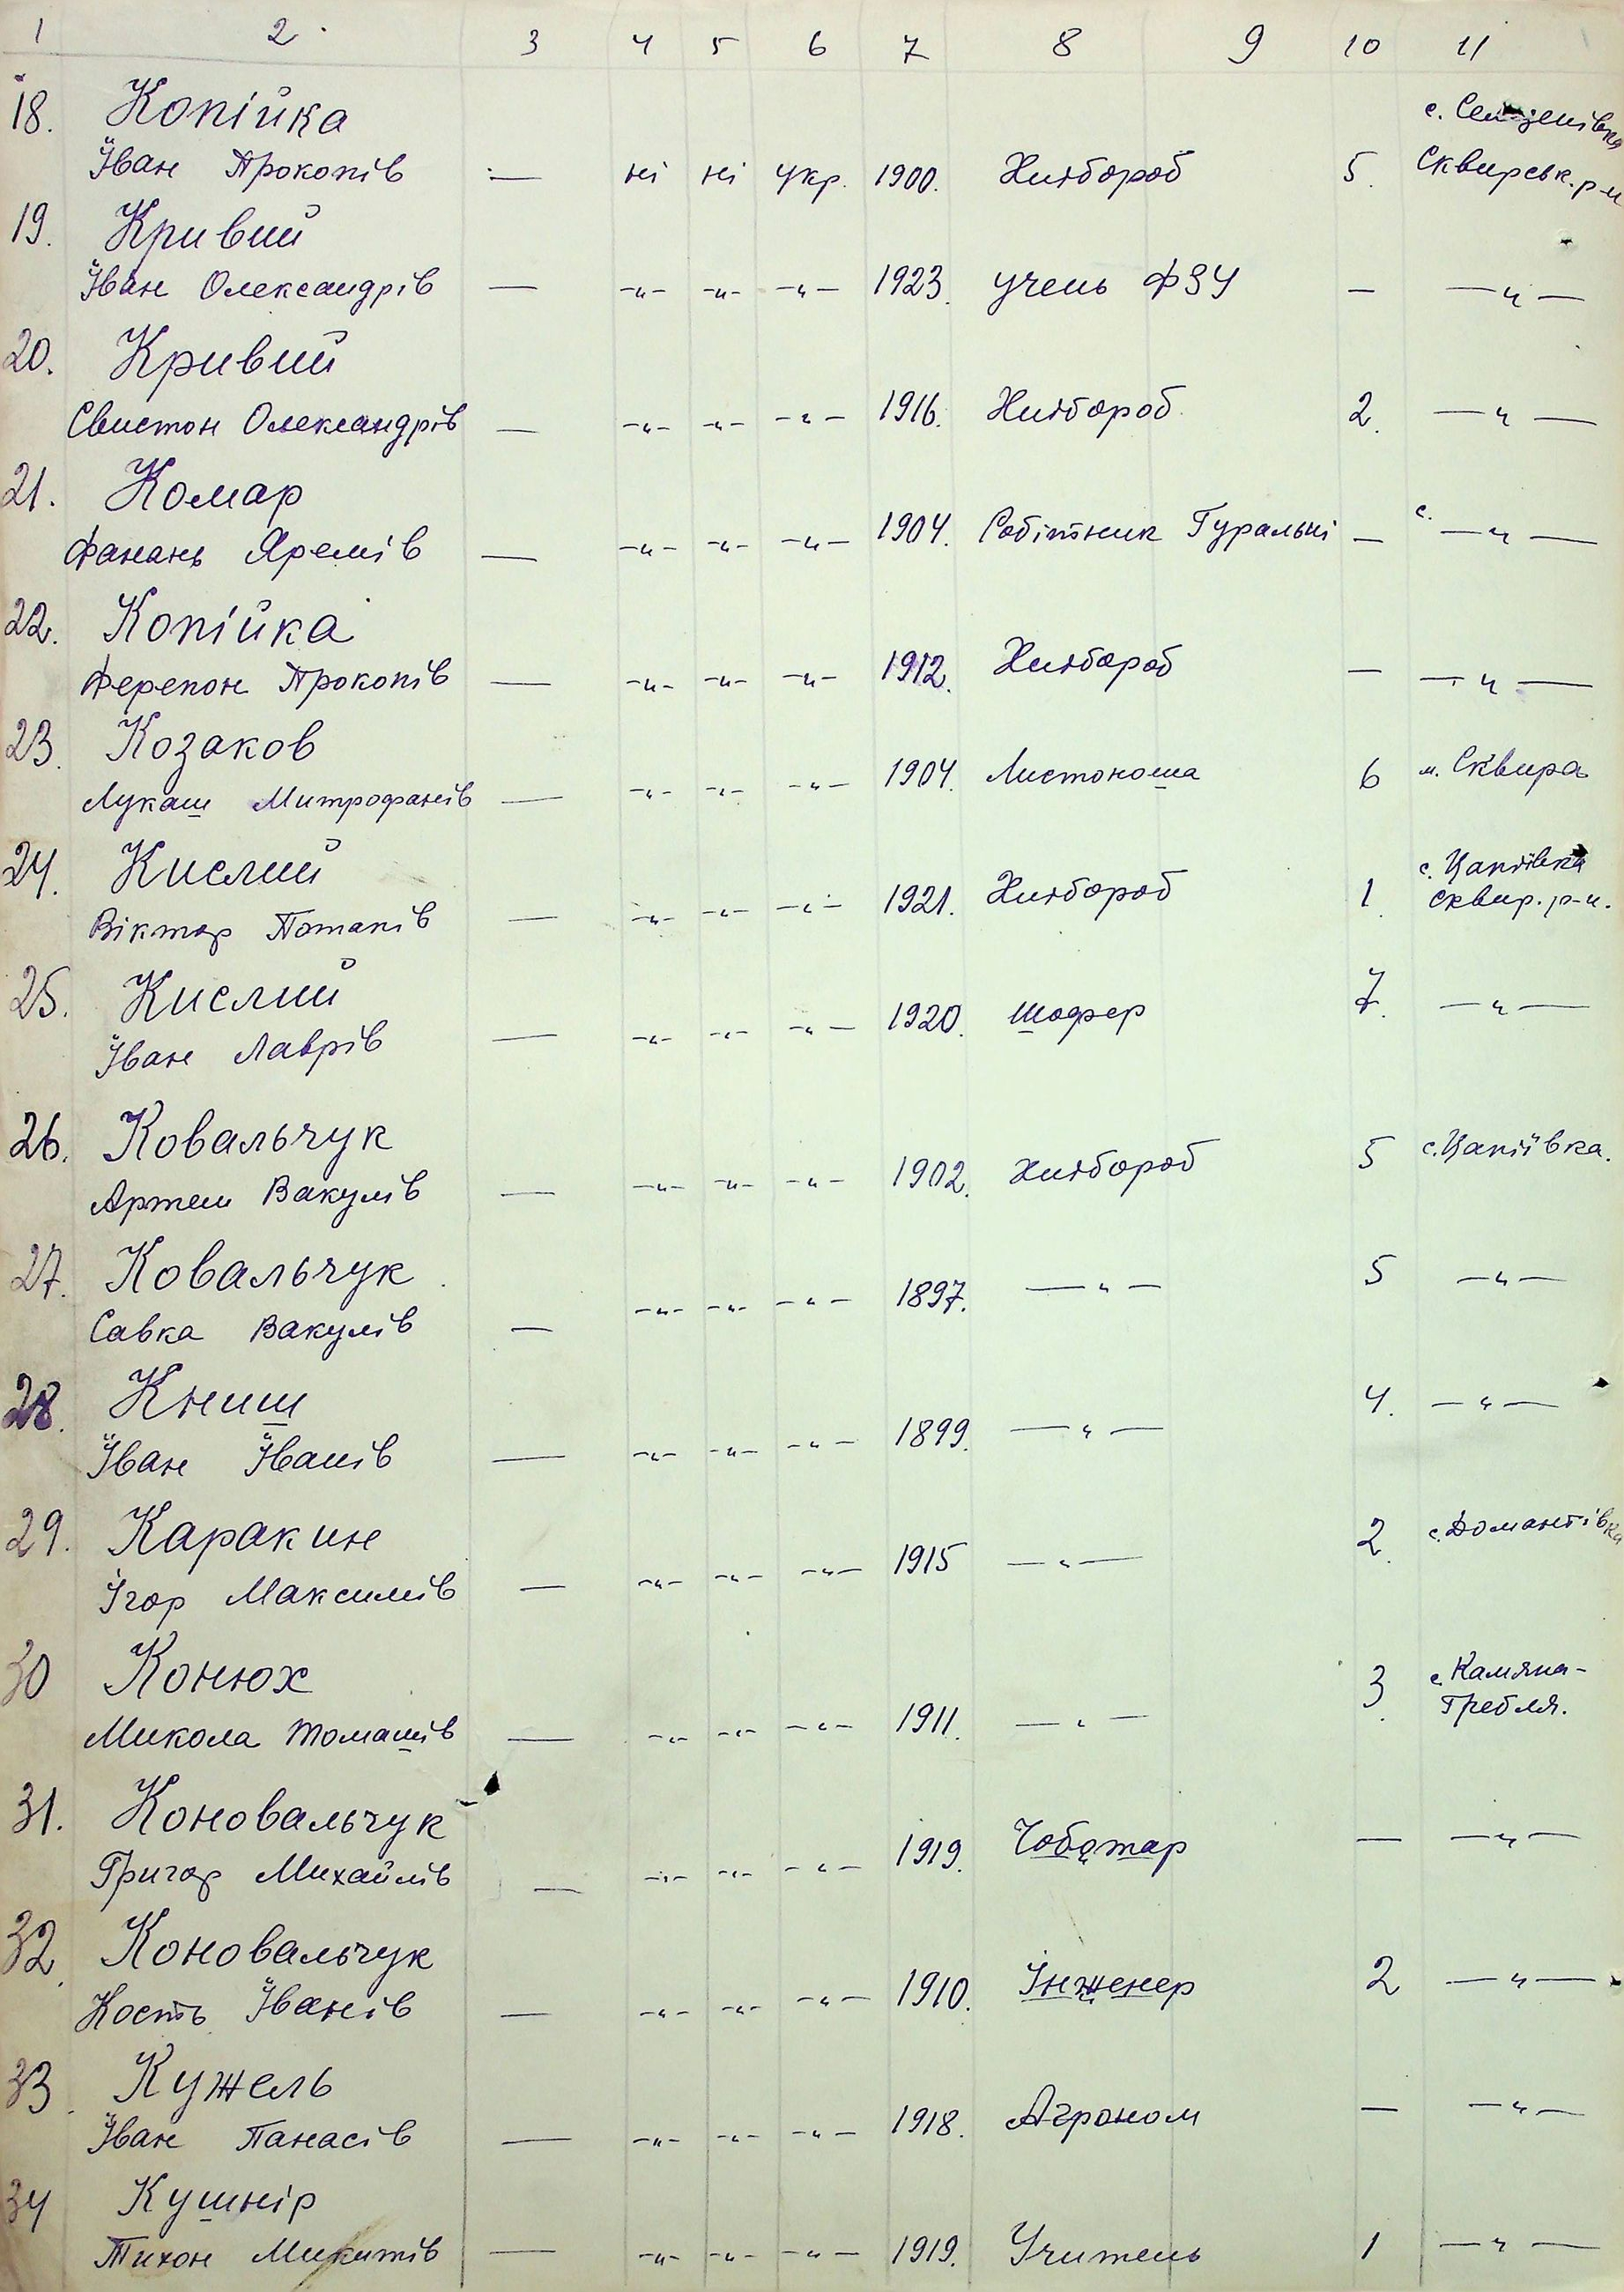 1 2 3 4 5 6 7 8 9 10 11
18. Копійка с. Селезенівка
Іван Прокопів — ні ні укр. 1900. Хлібороб 5. Сквирськ. р-н
19. Кривий
Іван Олександрів — -"- -"- -"- 1923. учень ФЗУ — -"-
20. Кривий
Свистон Олександрів — -"- -"- -"- 1916. Хлібороб 2. -"-
21. Комар
Фанань Яремів — -"- -"- -"- 1904. Робітник Гуральні — с. -"-
22. Копійка
Ферепон Прокопів — -"- -"- -"- 1912. Хлібороб — -"-
23. Козаков
Лукаш Митрофанів — -"- -"- -"- 1904. Листоноша 6 м. Сквира
24. Кислий с. Цапіївка
Віктор Потапів — -"- -"- -"- 1921. Хлібороб 1. Сквир. р-н.
25. Кислий
Іван Лаврів — -"- -"- -"- 1920. Шофер 7. -"-
26. Ковальчук
Артем Вакулів — -"- -"- -"- 1902. Хлібороб 5 с. Цапіївка.
27. Ковальчук
Савка Вакулів — -"- -"- -"- 1897. -"- 5 -"-
28. Книш
Іван Іванів — -"- -"- -"- 1899. -"- 4. -"-
29. Каракин
Ігор Максимів — -"- -"- -"- 1915 -"- 2. с. Домантівка
30 Конюх с. Камяна-
Микола Томашів — -"- -"- -"- 1911. -"- 3. Гребля.
31. Коновальчук
Григор Михайлів — -"- -"- -"- 1919. Чоботар — -"-
32. Коновальчук
Кость Іванів — -"- -"- -"- 1910. Інженер 2 -"-
33. Кужель
Іван Панасів — -"- -"- -"- 1918. Агроном — -"-
34 Кушнір
Тихон Микитів — -"- -"- -"- 1919. Учитель 1 -"-